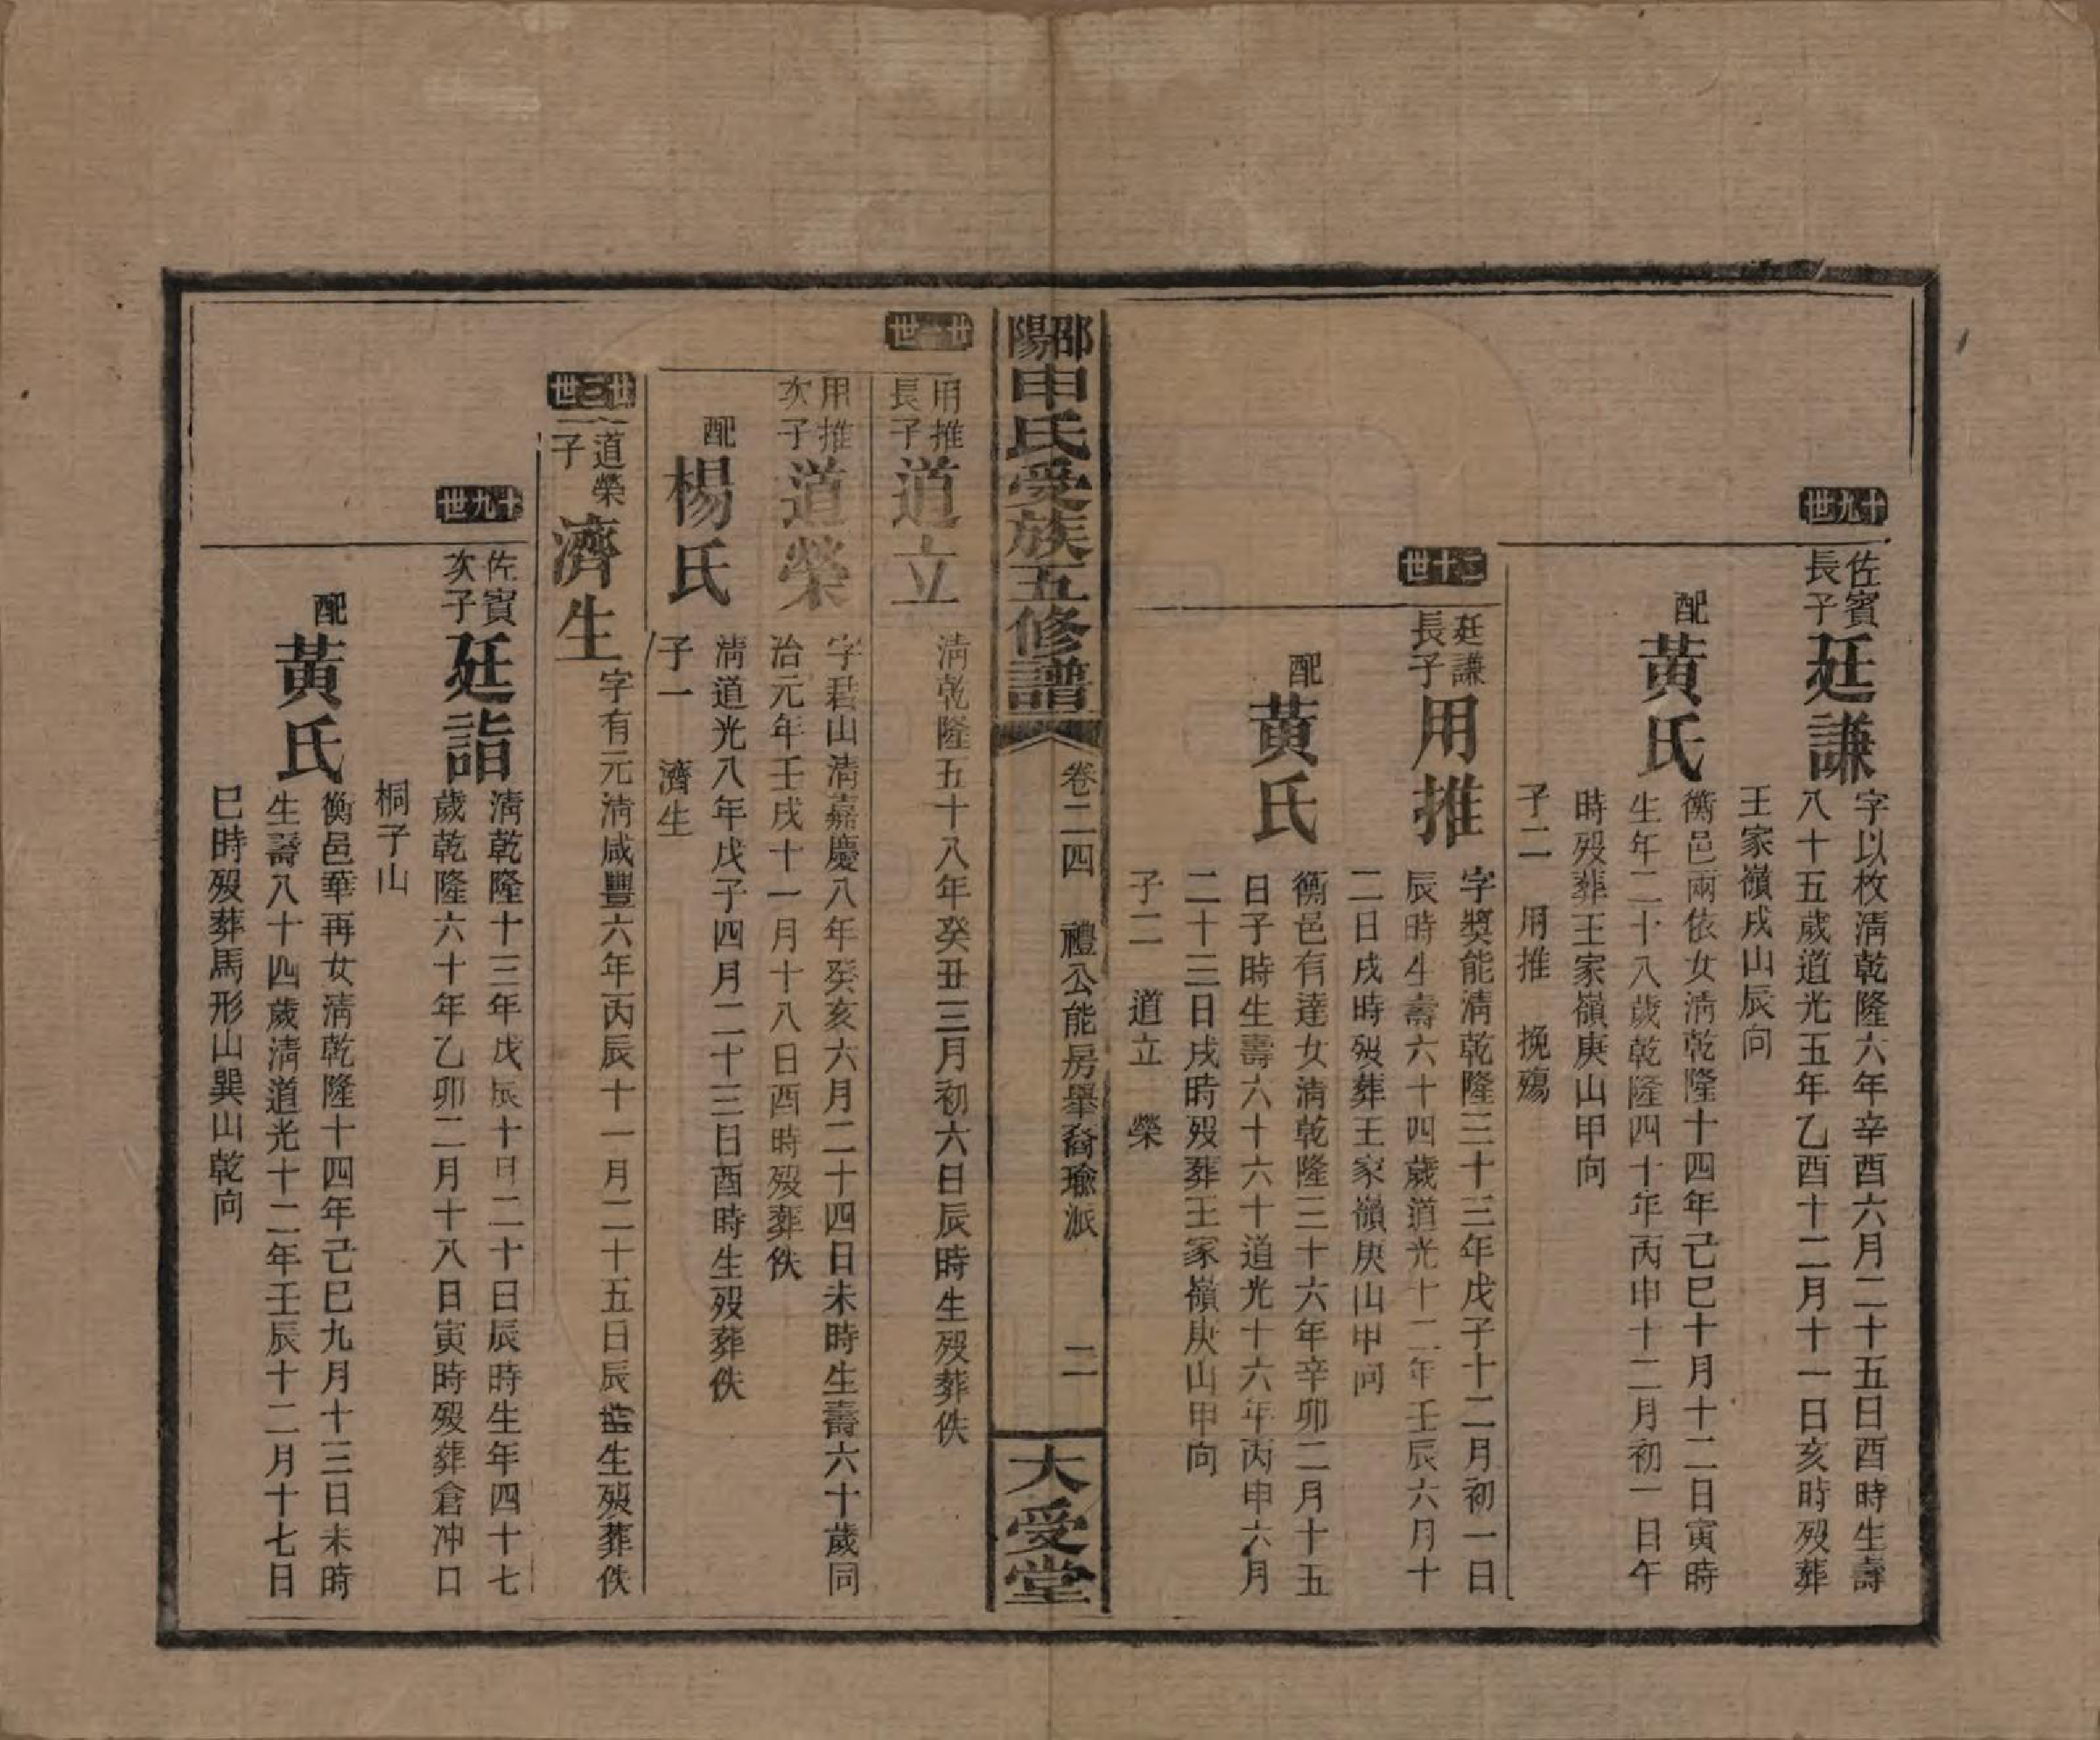 十九世
佐賓長子
廷謙
字以枚淸乾隆六年辛酉六月二十五日酉時生壽
八十五歲道光五年乙酉十二月十一日亥時歿葬
王家嶺戌山辰向
配
黃氏
衡邑兩依女淸乾隆十四年己巳十月十二日寅時
生年二十八歲乾隆四十年丙申十二月初一日午
時歿葬王家嶺庚山甲向
子二 用推 挽殤
二十世
廷謙長子
用推
字獎能淸乾隆三十三年戊子十二月初一日
辰時生壽六十四歲道光十二年壬辰六月十
二日戌時歿葬王家嶺庚山甲向
配
黃氏
衡邑有達女淸乾隆三十六年辛卯二月十五
日子時生壽六十六十道光十六年丙申六月
二十三日戌時歿葬王家嶺庚山甲向
子二 道立 榮
邵陽申氏受族五修譜
卷二四 禮公能房舉裔瑜派
二
大受堂
廿一世
用推長子
道立
淸乾隆五十八年癸丑三月初六日辰時生歿葬佚
用推次子
道榮
字君山淸嘉慶八年癸亥六月二十四日未時生壽六十歲同
治元年壬戌十一月十八日酉時歿葬佚
配
楊氏
淸道光八年戊子四月二十三日酉時生歿葬佚
子一 濟生
廿二世
道榮子
濟生
字有元淸咸豐六年丙辰十一月二十五日辰時生歿葬佚
十九世
佐賓次子
廷詣
淸乾隆十三年戊辰十月二十日辰時生年四十七
歲乾隆六十年乙卯二月十八日寅時歿葬倉冲口
桐子山
配
黃氏
衡邑華再女淸乾隆十四年己巳九月十三日未時
生壽八十四歲淸道光十二年壬辰十二月十七日
巳時歿葬馬形山巽山乾向